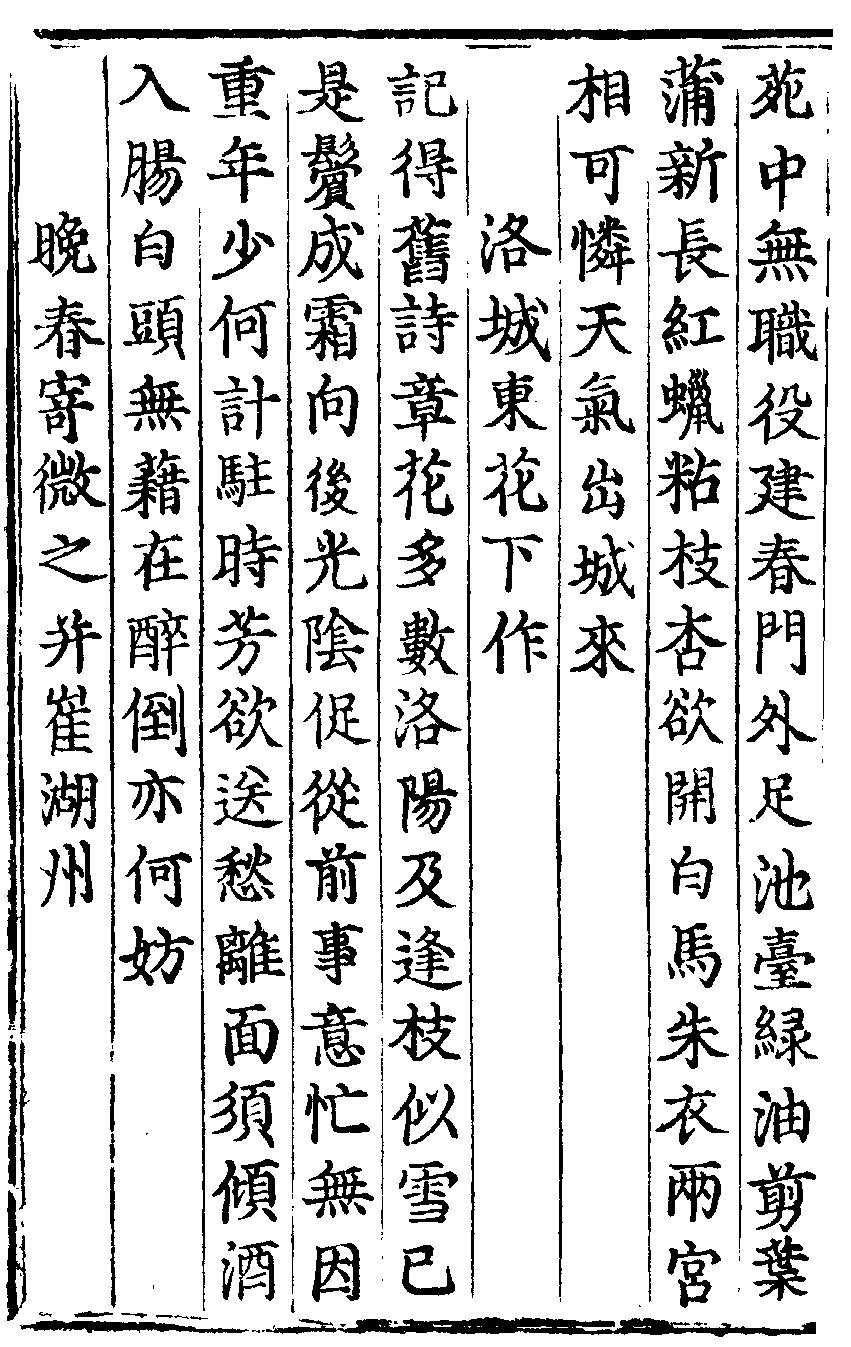 苑中無職役建春門外足池臺緑油剪葉
蒲新長紅蠟粘枝杏欲開白馬朱衣兩宮
相可憐天氣出城來
洛城東花下作
記得舊詩章花多數洛陽及逢枝似雪已
是鬢成霜向後光陰促從前事意忙無因
重年少何計駐時芳欲送愁離面須傾酒
入腸白頭無藉在醉倒亦何妨
晚春寄微之并崔湖州